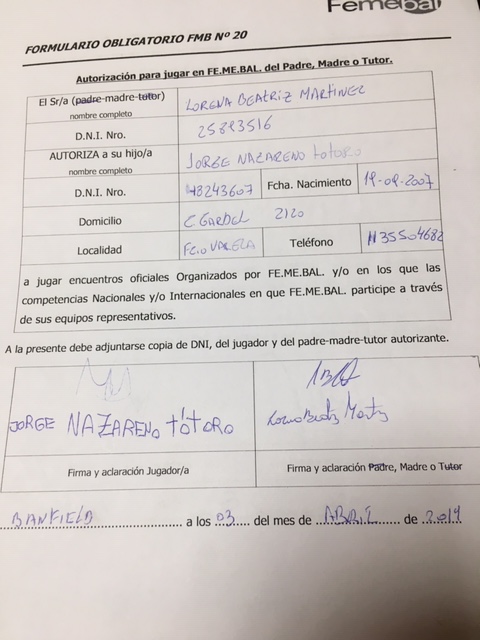 Femebal
FORMULARIO OBLIGATORIO FMB Nº 20
Autorización para jugar en FE.ME.BAL. del Padre, Madre o Tutor.
El Sr/a (padre-madre-tutor) nombre completo LORENA BEATRIZ MARTINEZ
D.N.I. Nro. 25893516
AUTORIZA a su hijo/a nombre completo JORGE NAZARENO tOtORO
D.N.I. Nro. 48243607 Fcha. Nacimiento 19-09-2007
Domicilio C GARDEL 2120
Localidad FCIO VARELA Teléfono 1135504682
a jugar encuentros oficiales Organizados por FE.ME.BAL. y/o en los que las
competencias Nacionales y/o Internacionales en que FE.ME.BAL. participe a través
de sus equipos representativos.
A la presente debe adjuntarse copia de DNI, del jugador y del padre-madre-tutor autorizante.
JORGE NAZARENO tótORO
Firma y aclaración Jugador/a
Firma y aclaración Padre, Madre o Tutor
BANFIELD a los 03 del mes de ABRIL de 2019